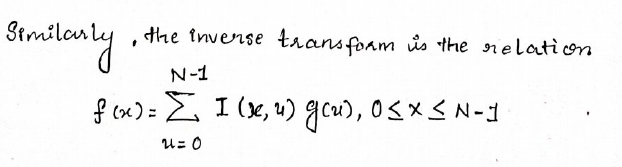 Similarly, the inverse transform is the relation
N-1
f(x) = Σ I(x,u) g(u), 0 ≤ x ≤ N-1
u=0